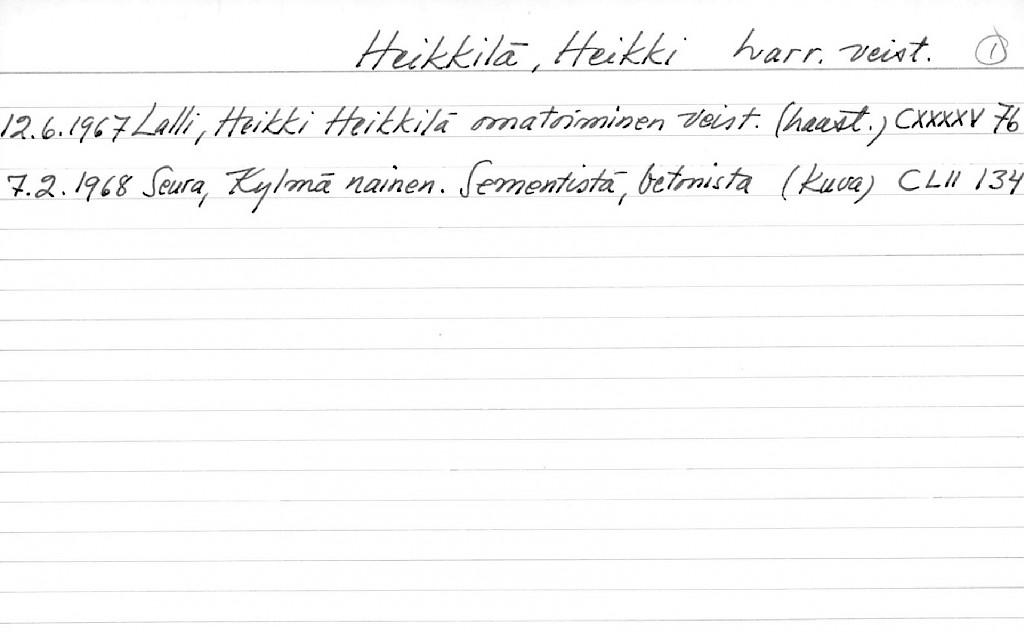 Heikkilä, Heikki harr. veist. 1
12.6.1967 Lalli, Heikki Heikkilä omatoiminen veist. (haast.) CXXXXV 76
7.2.1968 Seura, Kylmä nainen. Sementistä, betonista (kuva) CLII 134